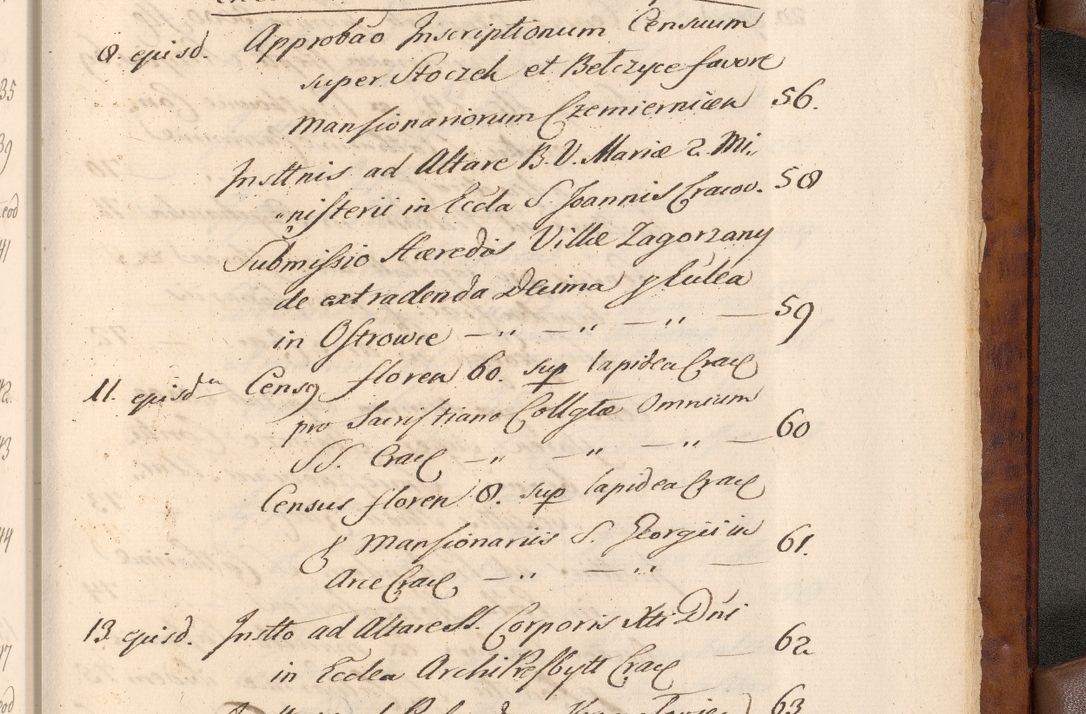 8. ejusd. Approbao Inscriptionum Censuum
super Stoczek et Betczyce favore
Mansionariorum Czemiernicen 56.
Insttnis ad Altare B. V. Mariæ 2. Mi,
nisterii in Eccla S. Joannis Cracov. 58
Submissio Hæredis Villæ Zagorzany
de extradenda Decima
in Ostrowce — „ — „ — „ — 59
11. ejusdm Censq floren 60. sup lapidea Crac
pro Sacristiano Collgtæ Omnium
SS. Crac — „ — „ — „ — 60
Census floren 8. sup lapidea Crac
Mansionariis S. Georgii in
Arce Crac — „ — „ 61.
13. ejusd. Instto ad Altare SS. Corporis Xti Dni
in Ecclea ArchiPresbytt Crac — 62
63
35
39
eod
41
42.
43
44
47
eod